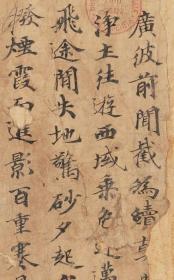 廣彼前聞截為續真
淨土往遊西域乘危遠邁
飛途閒失地驚砂夕起
撥煙霞而進影百重寒